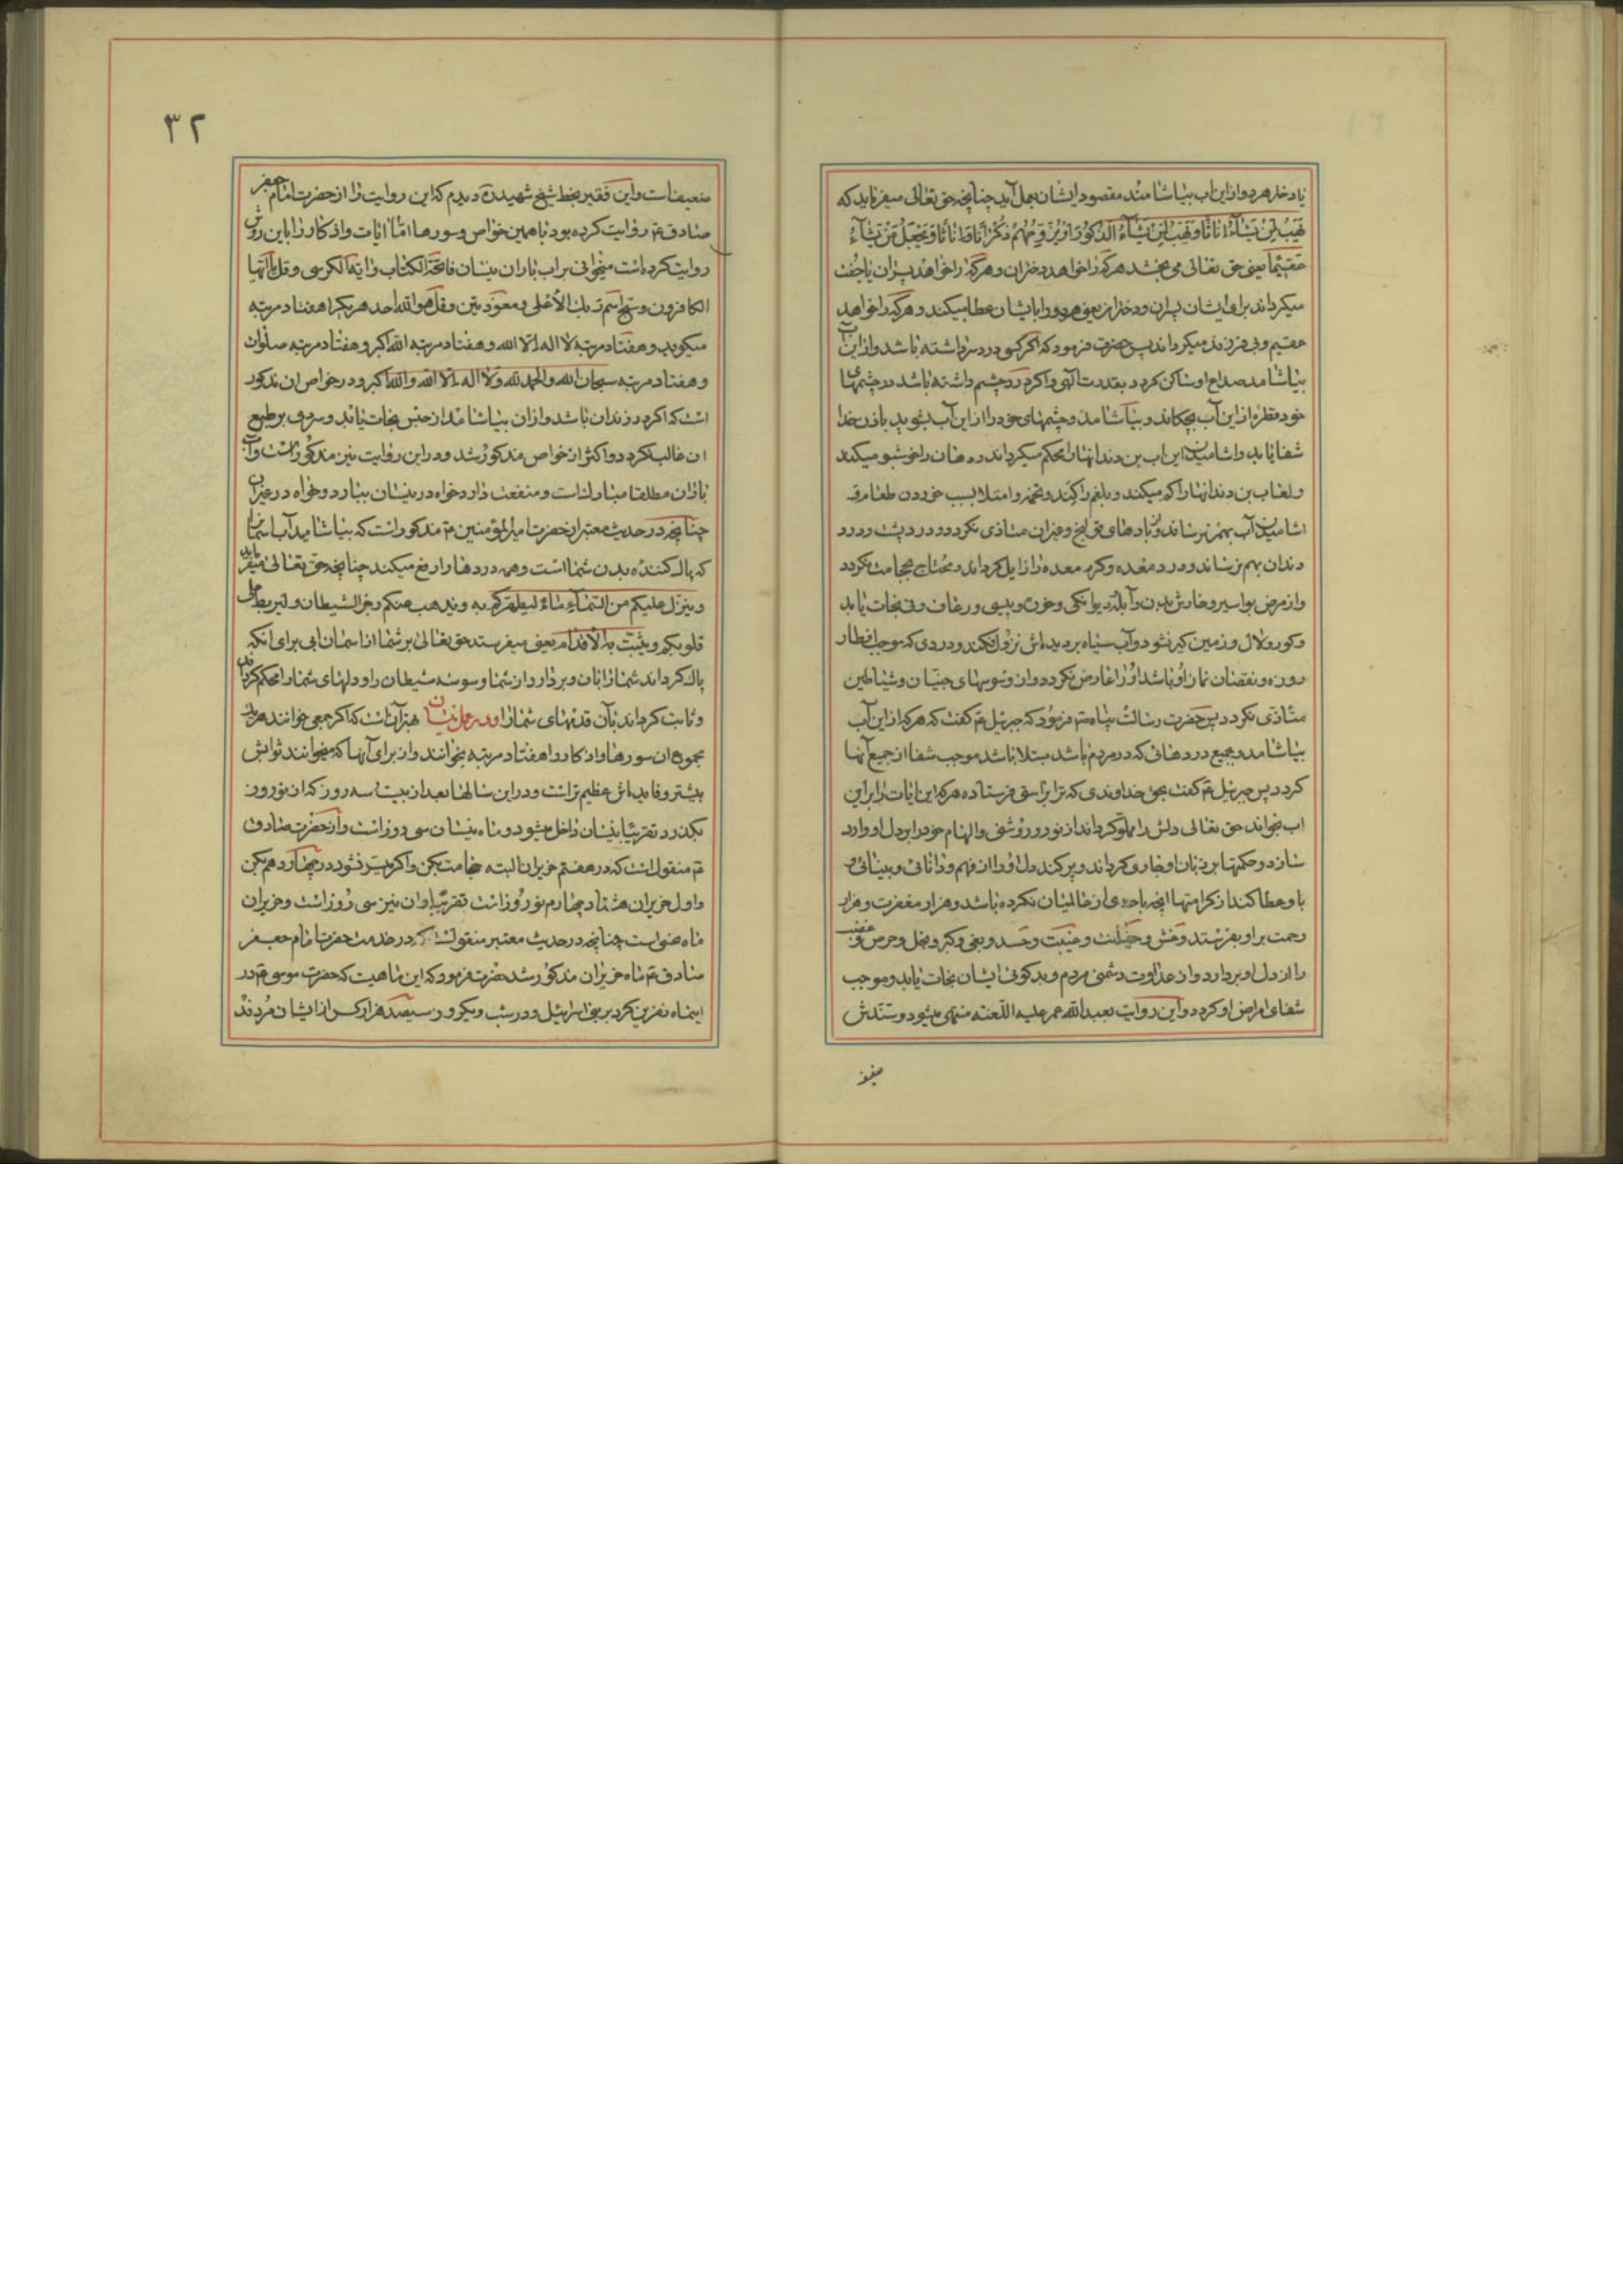 یا دختر هر دو از این اب بیاشامند مقصود ایشان بعمل آید چنانچه حق تعالی میفرماید که
یَهَبُ لِمَن یَشآءُ اِناثًا وَیَهَبُ لِمَن یَشآءُ الذُکُورَ اَوْ یُزَوِّجُهُمْ ذُکْرانًا وَاِناثًا وَیَجْعَلُ مَنْ یَشآءُ
عَقیمًا یعنی حق تعالی می بخشد هرکه را خواهد دختران و هرکه را خواهد پسران یا جفت
میکرداند برای ایشان پسران و دختران یعنی هر دو را بایشان عطا میکند و هرکه را خواهد
عقیم و بی فرزند میکرداند پس حضرت فرمود که اکر کسی درد سر داشته باشد و از این آب
بیاشامد صداع او ساکن کردد بقدرت الهی و اکر درد چشم داشته باشد در چشمهای
خود قطره از این آب بچکاند و بیاشامد و چشمهای خود را از این آب بشوید باذن خدا
شفا یابد و اشامیدن این اب بن دندانها را محکم میکرداند و دهان را خوشبو میکند
و لعاب بن دندانها را کم میکند و بلغم را کم کند و تخمه و امتلا بسبب خوردن طعام و
اشامیدن آب بهم نرساند و از بادهای قولنج و غیر ان متاذی نکردد و درد پشت و درد
دندان بهم نرساند و درد معده و کرم معده را زایل کرداند و محتاج بحجامت نکردد
و از مرض بواسیر و خارش بدن و آبله و دیوانکی و خوره و پیسی و رعاف و قی نجات یابد
و کور و لال و زمین کیر نشود و آب سیاه بر دیده‌اش نزول نکند و دردی که موجب افطار
روزه و نقصان نماز او باشد او را عارض نکردد و از وسوسهای جنیان و شیاطین
متاذی نکردد پس حضرت رسالت پناه ص فرمود که جبرئیل ع کفت که هرکه از این آب
بیاشامد و بجمیع دردهائی که در مردم باشد مبتلا باشد موجب شفا از جمیع آنها
کردد پس جبرئیل ع کفت بحق خداوندی که ترا براستی فرستاده هرکه این ایات را بر این
اب بخواند حق تعالی دلش را مملو کرداند از نور و روشنی و الهام خود را بر دل او وارد
سازد و حکمتها بر زبان او جاری کرداند و پر کند دل او را از فهم و دانائی و بینائی و
باو عطا کند از کرامتها انچه باحدی از عالمیان نکرده باشد و هزار مغفرت و هزار
رحمت بر او بفرستد و غش و خیانت و غیبت و حسد و بغی و کبر و بخل و حرص و غضب
را از دل او بردارد و از عداوت و دشمنی مردم و بدکوئی ایشان نجات یابد و موجب
شفای امراض او کردد و این روایت بعبدالله عمر علیه اللّعنه منتهی میشود و سندش
ضعیف
۳۲
ضعیفست و این فقیر بخط شیخ شهید ره دیدم که این روایت را از حضرت امام جعفر
صادق ع روایت کرده بود با همین خواص و سورها امّا ایات و اذکار را باین روش
روایت کرده است میخوانی بر اب باران نیسان فاتحة الکتاب و آیة الکرسی و قل یا ایها
الکافرون و سبح اسم ربک الأعلی و معوذتین و قل هو الله احد هر یک را هفتاد مرتبه
میکوید و هفتاد مرتبه لا اله الا الله و هفتاد مرتبه الله اکبر و هفتاد مرتبه صلوات
و هفتاد مرتبه سبحان الله و الحمد لله و لا اله الا الله و الله اکبر و در خواص ان مذکور
است که اکر در زندان باشد و از ان بیاشامد از حبس نجات یابد و سردی بر طبع
ان غالب نکردد و اکثر از خواص مذکور شد و در این روایت نیز مذکور است و آب
باران مطلقا مبارک است و منفعت دارد خواه در نیسان ببارد و خواه در غیر آن
چنانچه در حدیث معتبر از حضرت امیرالمؤمنین ع مذکور است که بیاشامید آب اسمان را
که پاک کننده بدن شما است و همه دردها را رفع میکند چنانچه حق تعالی میفرماید
وینزل علیکم من السّمآء مآءً لیطهّرکم به ویذهب عنکم رجز الشیطان ولیربط علی
قلوبکم ویثبّت به الأقدام یعنی میفرستد حق تعالی بر شما از اسمان ابی برای انکه
پاک کرداند شما را بان و بردارد از شما وسوسه شیطان را و دلهای شما را محکم کرداند
و ثابت کرداند بآن قدمهای شما را و در عمل نیسان بهتر آنست که اکر جمعی خوانند هر یک
مجموع ان سورها و اذکار را هفتاد مرتبه بخوانند و از برای آنها که میخوانند ثوابش
بیشتر و فایده‌اش عظیم تر است و در این سالها بعد از بیست و سه روز که از نوروز
بکذرد تقریبًا نیسان داخل میشود و ماه نیسان سی روز است و از حضرت صادق
ع منقول است که در هفتم حزیران البته حجامت بکن و اکر میسر نشود در چهاردهم بکن
و اول حزیران هشتاد و چهارم نوروز است تقریبًا و ان نیز سی روز است و حزیران
ماه نحس است چنانچه در حدیث معتبر منقول است که در خدمت حضرت امام جعفر
صادق ع ماه حزیران مذکور شد حضرت فرمود که این ماهیست که حضرت موسی ع در
اینماه نفرین کرد بر بنی اسرائیل و در یک شب و یک روز سیصد هزار کس از ایشان مردند